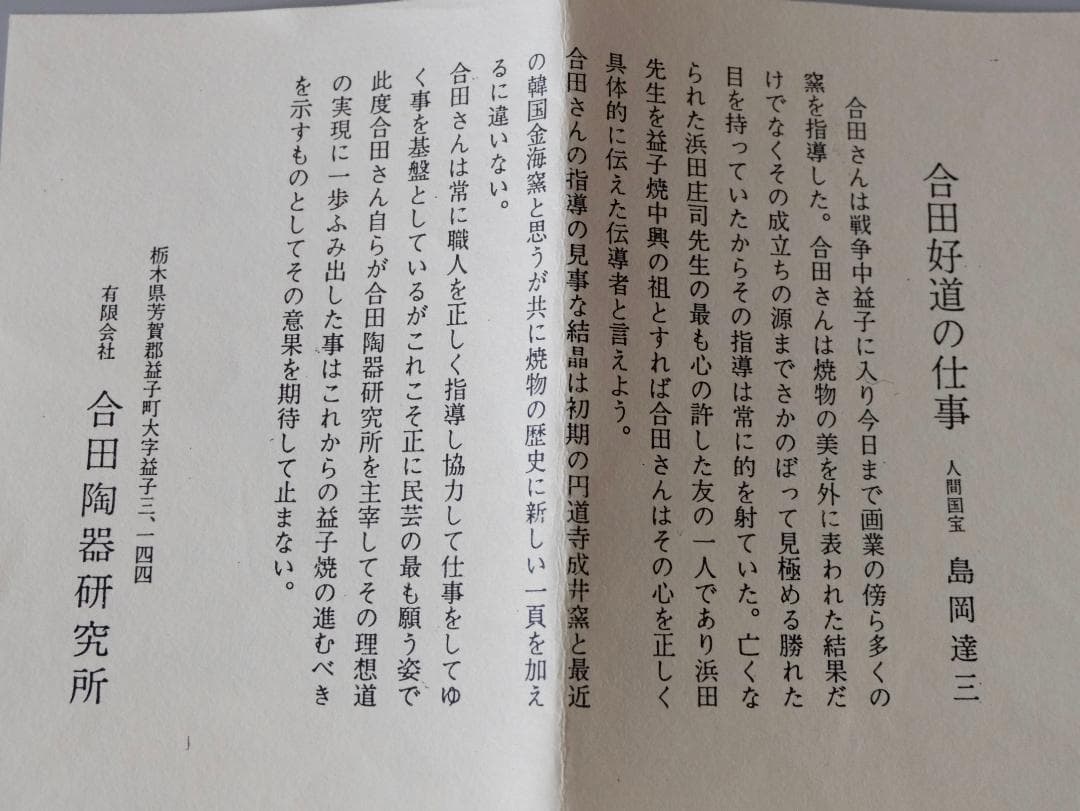 合田好道の仕事 人間国宝 島岡達三
合田さんは戦争中益子に入り今日まで画業の傍ら多くの
窯を指導した。合田さんは焼物の美を外に表われた結果だ
けでなくその成立ちの源までさかのぼって見極める勝れた
目を持っていたからその指導は常に的を射ていた。亡くな
られた浜田庄司先生の最も心の許した友の一人であり浜田
先生を益子焼中興の祖とすれば合田さんはその心を正しく
具体的に伝えた伝導者と言えよう。
合田さんの指導の見事な結晶は初期の円道寺成井窯と最近
の韓国金海窯と思うが共に焼物の歴史に新しい一頁を加え
るに違いない。
合田さんは常に職人を正しく指導し協力して仕事をしてゆ
く事を基盤としているがこれこそ正に民芸の最も願う姿で
此度合田さん自らが合田陶器研究所を主宰してその理想道
の実現に一歩ふみ出した事はこれからの益子焼の進むべき
を示すものとしてその意果を期待して止まない。
栃木県芳賀郡益子町大字益子三、一四四
有限会社 合田陶器研究所